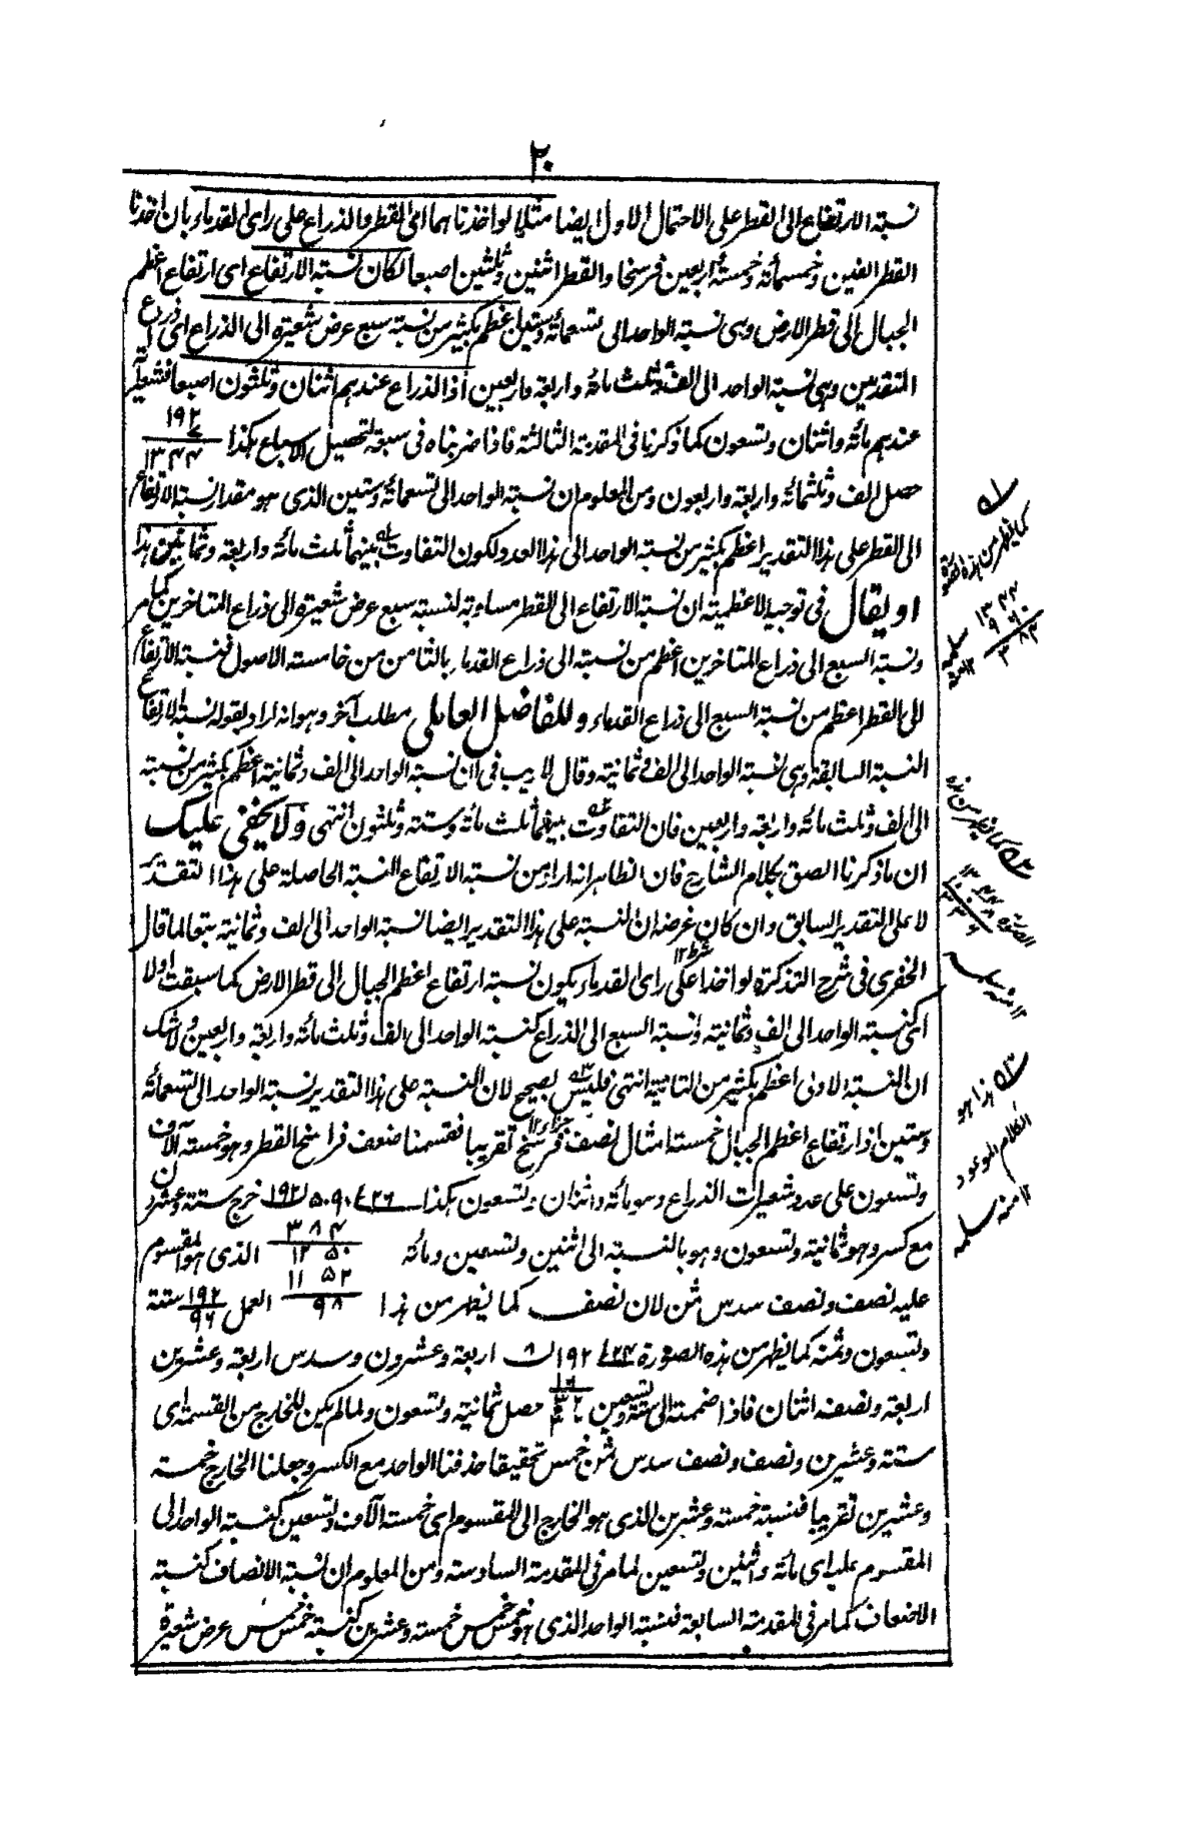 ٢٠
نسبة الارتفاع الى القطر على الاحتمال الاول ايضا مثلها لو اخذناهما اى القطر والذراع على راى القدماء بان اخذنا
القطر الفين وخمسمائة وخمسة اربعين فرسخا والقطر اثنين وثلثين اصبعا لكان نسبة الارتفاع اى ارتفاع اعظم
الجبال الى قطر الارض وهى نسبة الواحد الى تسعمائة وستين اعظم بكثير من نسبة سبع عرض شعيرة الى الذراع اى ذراع
المتقدمين وهى نسبة الواحد الى الف وثلث مائة واربعة واربعين اذ الذراع عندهم اثنان وثلثون اصبعا فشعيراته
عندهم مائة واثنان وتسعون كما ذكرنا فى المقدمة الثالثة فاذا ضربناه فى سبعة لتحصيل الاسباع هكذا
١٩٢
٧
١٣٤٤
حصل الف وثلثمائة واربعة واربعون ومن المعلوم ان نسبة الواحد الى تسعمائة وستين الذى هو مقدار نسبة الارتفاع
الى القطر على هذا التقدير اعظم بكثير من نسبة الواحد الى هذا العدد لكون التفاوت بينهما ثلث مائة واربعة وثمانين هذا
او يقال فى توجيه الاعظمية ان نسبة الارتفاع الى القطر مساوية لنسبة سبع عرض شعيرة الى ذراع المتاخرين كما مر
ونسبة السبع الى ذراع المتاخرين اعظم من نسبته الى ذراع القدماء بالثامن من خامسة الاصول فنسبة الارتفاع
الى القطر اعظم من نسبة السبع الى ذراع القدماء وللفاضل العاملى مطلب آخر وهو انه اراد بقوله نسبة الارتفاع
النسبة السابقة وهى نسبة الواحد الى الف وثمانية وقال لا ريب فى ان نسبة الواحد الى الف وثمانية اعظم بكثير من نسبته
الى الف وثلث مائة واربعة واربعين فان التفاوت بينهما ثلث مائة وستة وثلثون انتهى ولا يخفى عليك
ان ما ذكرنا الصق بكلام الشارح فان الظاهر انه اراد من نسبة الارتفاع النسبة الحاصلة على هذا التقدير
لا على التقدير السابق وان كان غرضه ان النسبة على هذا التقدير ايضا نسبة الواحد الى الف وثمانية تبعا لما قال
الخفرى فى شرح التذكرة لو اخذا على راى القدماء يكون نسبة ارتفاع اعظم الجبال الى قطر الارض كما سبقت اولا
اى كنسبة الواحد الى الف وثمانية ونسبة السبع الى الذراع كنسبة الواحد الى الف وثلث مائة واربعة واربعين ولا شك
ان النسبة الاولى اعظم بكثير من الثانية انتهى فليس بصحيح لان النسبة على هذا التقدير نسبة الواحد الى تسعمائة
وستين اذ ارتفاع اعظم الجبال خمسة امثال لنصف فرسخ تقريبا فقسمنا ضعف فراسخ القطر وهو خمسة آلاف
وتسعون على عدد شعيرات الذراع وهو مائة واثنان وتسعون هكذا ١٩٢ ٥٠٩٠ ٢٦ خرج ستة وعشرون
٣٨٤
١٢٥٠
١١٥٢
٩٨
مع كسر وهو ثمانية وتسعون وهو بالنسبة الى اثنين وتسعين ومائة الذى هو المقسوم
عليه نصف ونصف سدس ثمن لان نصف كما يظهر من هذا العمل
١٩٢
٩٦
ستة
وتسعون وثمنه كما يظهر من هذه الصورة ٨ ١٩٢ ٢٤ اربعة وعشرون وسدس اربعة وعشرين
١٦
٣٢
اربعة ونصفه اثنان فاذا ضممته الى ستة وتسعين حصل ثمانية وتسعون ولما لم يكن للخارج من القسمة اى
ستة وعشرين ونصف ونصف سدس ثمن خمس تحقيقا حذفنا الواحد مع الكسر وجعلنا الخارج خمسة
وعشرين تقريبا فنسبة خمسة وعشرين الذى هو الخارج الى المقسوم اى خمسة الآف وتسعين كنسبة الواحد الى
المقسوم عليه اى مائة واثنين وتسعين لما مر فى المقدمة السادسة ومن المعلوم ان نسبة الانصاف كنسبة
الاضعاف كما مر فى المقدمة السابعة فنسبة الواحد الذى هو خمس خمس خمسة وعشرين كنسبة خمس خمس عرض شعيرة
له
كما يظهر من هذه الصورة
١٣٤٤
٩٦٠
٣٨٤
١٢ منه سلمه
كما يظهر من هذه
الصورة
١٣٤٤
١٠٠٨
٣٣٦
١٢ منه سلمه
هذا هو
الكلام الموعود
١٢ منه سلمه